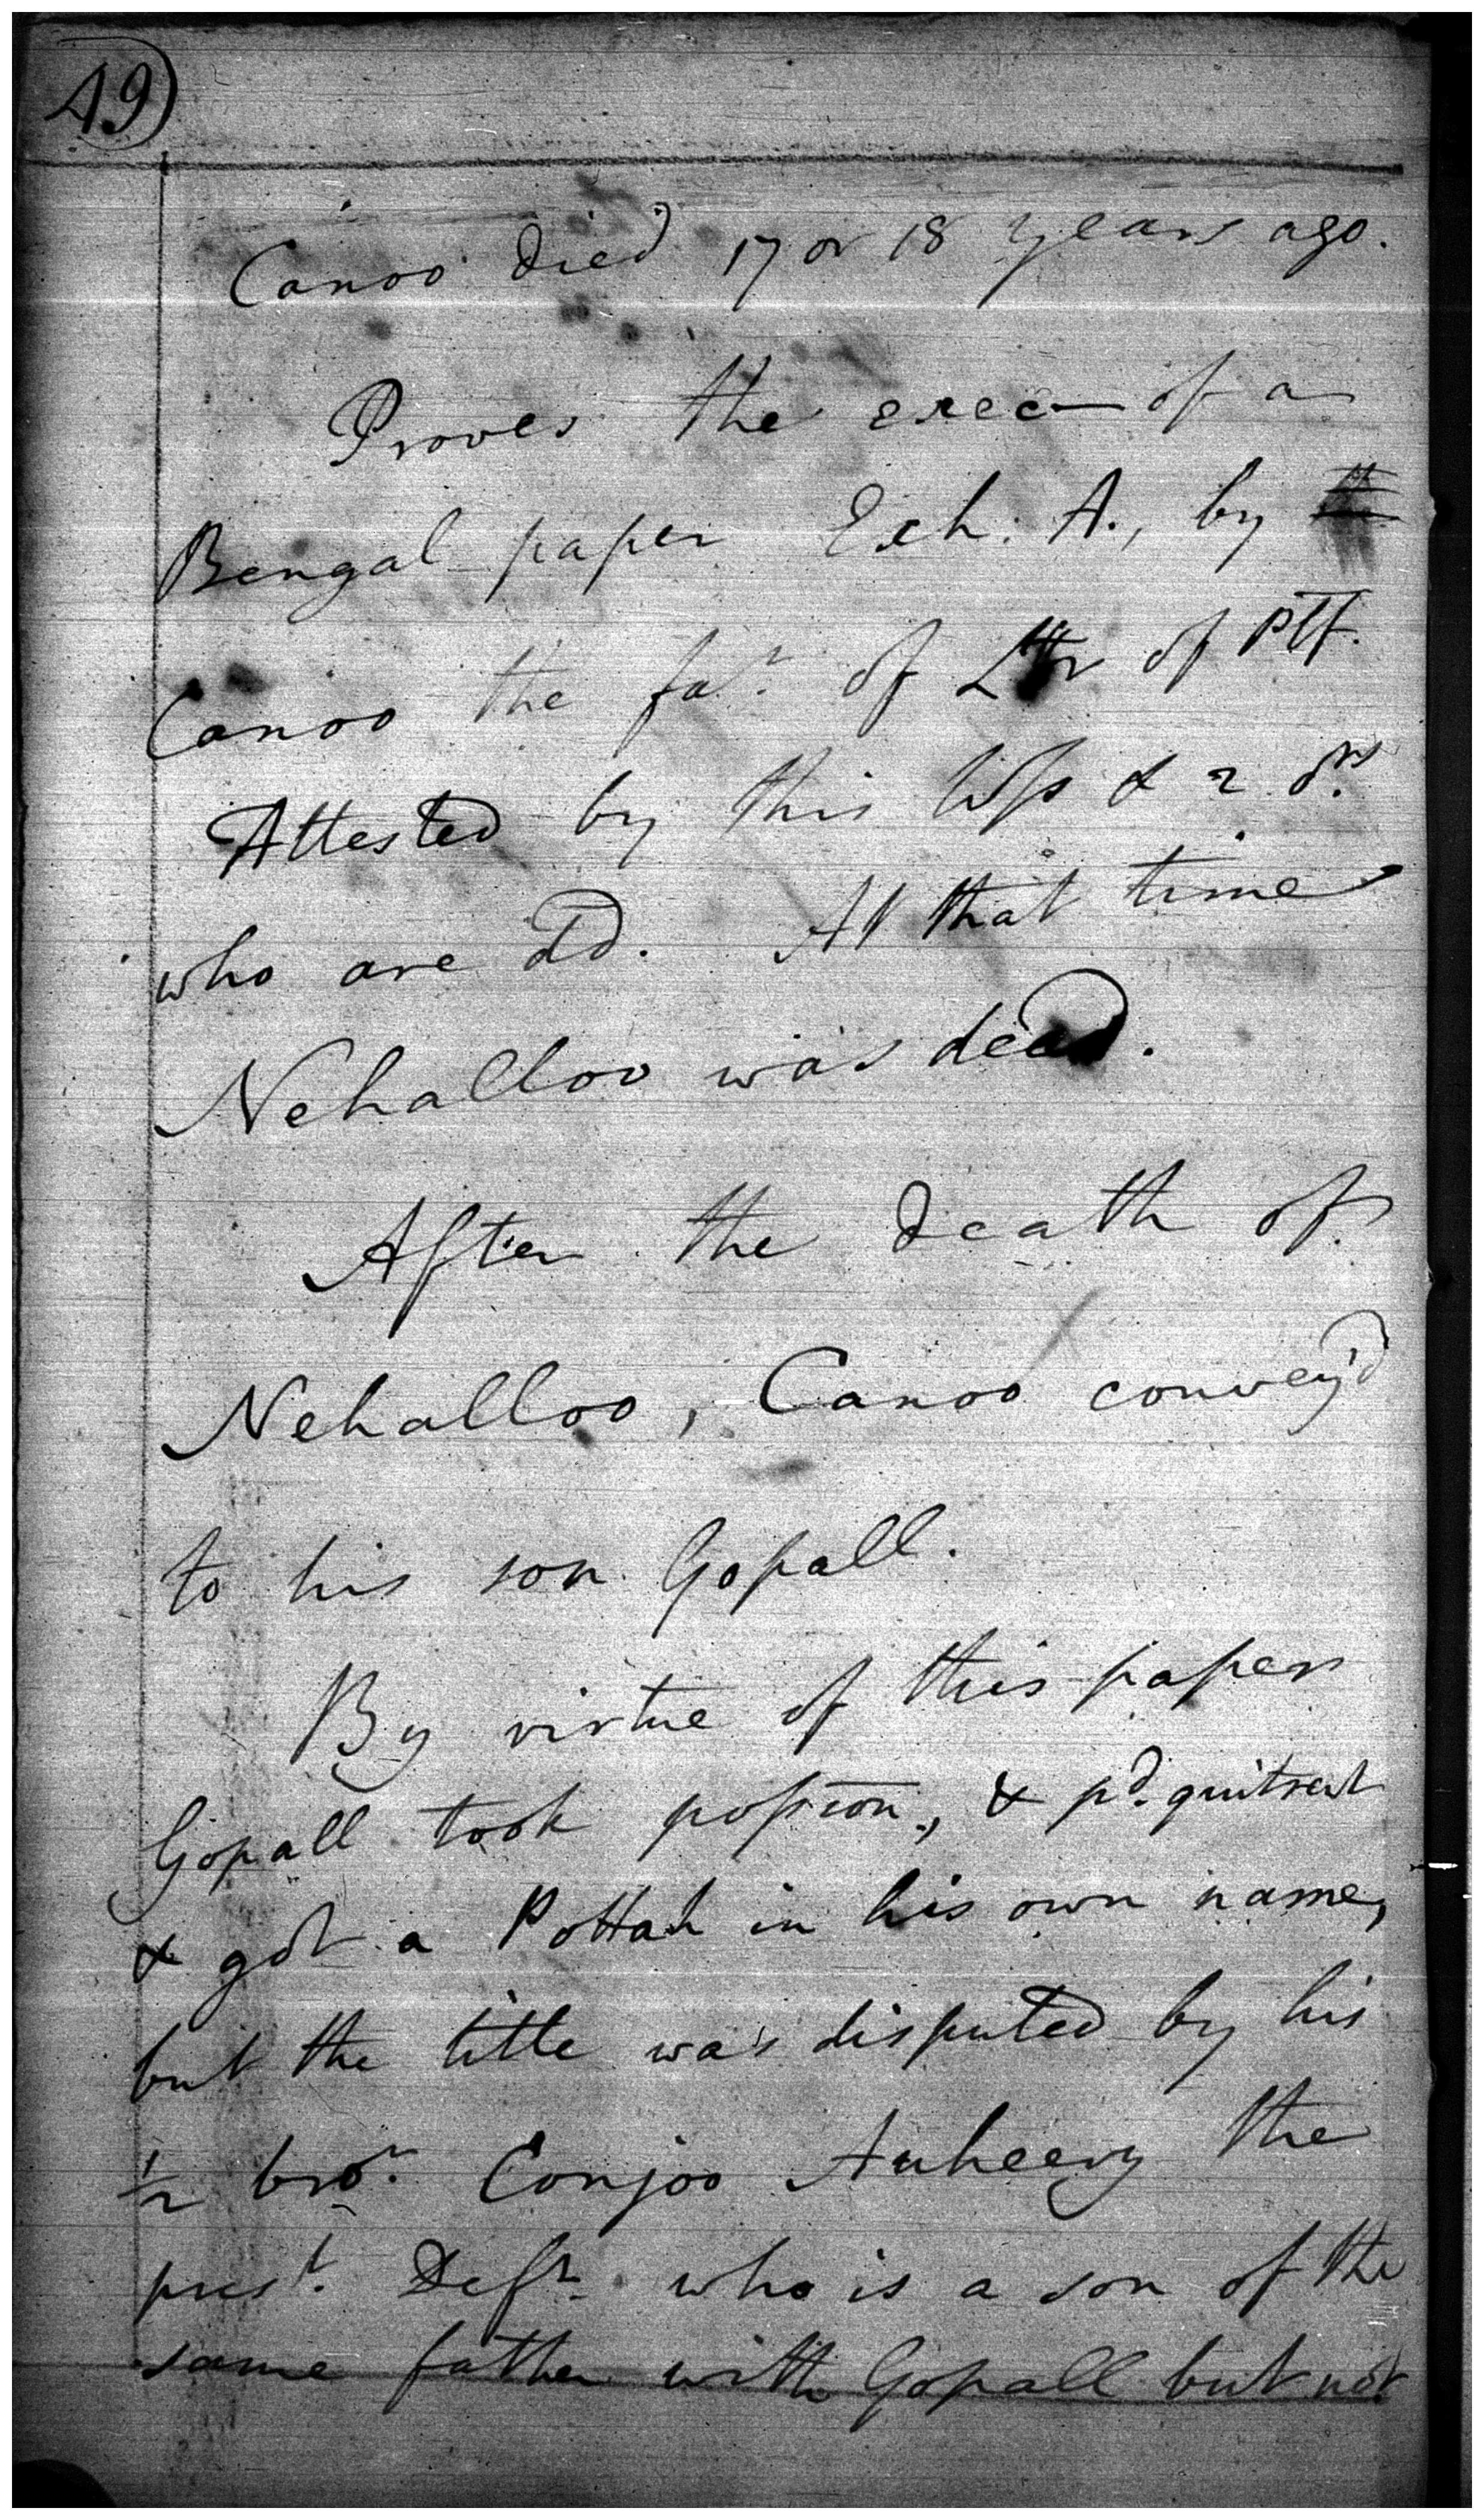 49
Canoo died 17 or 18 years ago.
Proves the exec— of a
Bengal paper Exh. A., by
Canoo the far. of of Plf.
Attested by this Wss & 2 ors
who are dd. At that time
Nehalloo was dead.
After the death of
Nehalloo, Canoo convey'd
to his son Gopall.
By virtue of this paper
Gopall took possion., & pd. quitrent
& got a Pottah in his own name,
but the title was disputed by his
1/2 bror. Conjoo Auheery the
prest. Deft. who is a son of the
same father with Gopall but not